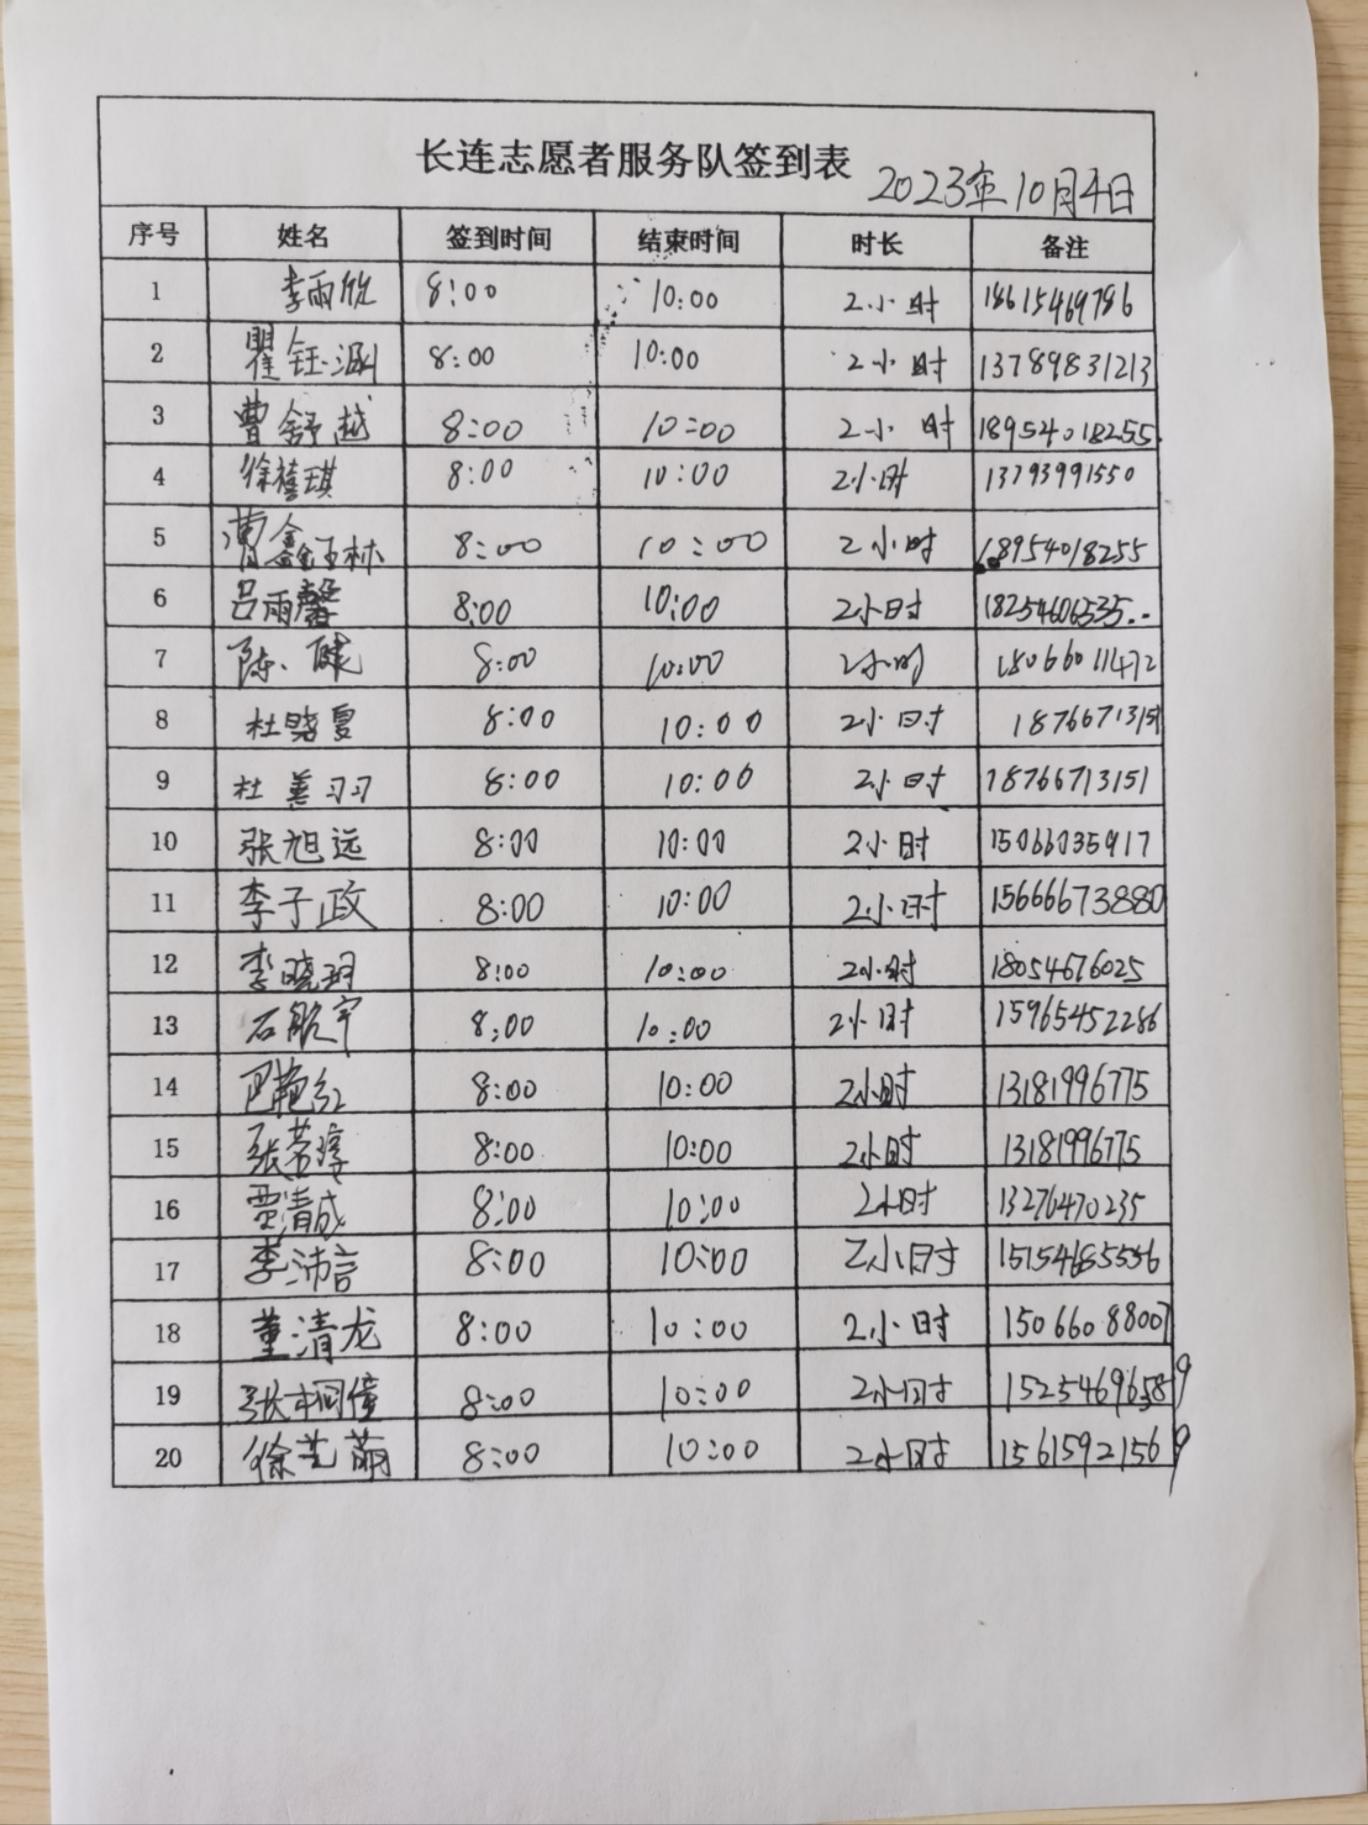 长连志愿者服务队签到表 2023年10月4日
序号 姓名 签到时间 结束时间 时长 备注
1 李雨欣 8:00 10:00 2小时 18615469786
2 瞿钰涵 8:00 10:00 2小时 13789831213
3 曹舒越 8:00 10:00 2小时 18954018255
4 徐禧琪 8:00 10:00 2小时 13793991550
5 曹鑫玉林 8:00 10:00 2小时 18954018255
6 吕雨馨 8:00 10:00 2小时 18254606535
7 陈健 8:00 10:00 2小时 18066011472
8 杜晓夏 8:00 10:00 2小时 18766713151
9 杜善习习 8:00 10:00 2小时 18766713151
10 张旭远 8:00 10:00 2小时 15066035917
11 李子政 8:00 10:00 2小时 15666673880
12 李晓玥 8:00 10:00 2小时 18054676025
13 石航宇 8:00 10:00 2小时 15965452286
14 巴艳红 8:00 10:00 2小时 13181996775
15 张茗淳 8:00 10:00 2小时 13181996775
16 贾清成 8:00 10:00 2小时 13276470235
17 李沛言 8:00 10:00 2小时 15154685556
18 董清龙 8:00 10:00 2小时 15066088007
19 张桐僮 8:00 10:00 2小时
20 徐艺萌 8:00 10:00 2小时 15615921569